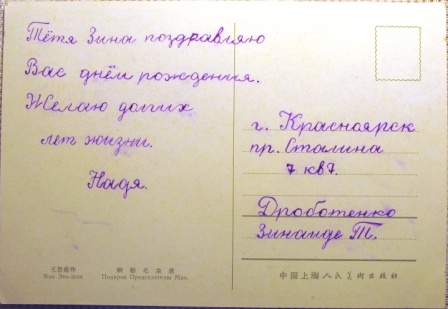 Тётя Зина поздравляю
Вас днём рождения.
Желаю долгих
лет жизни.
Надя.
г. Красноярск
пр. Сталина
7 кв 7.
Дроботенко
Зинаиде Т.
Подарки Председателю Мао.
中国上海人民美術出版社